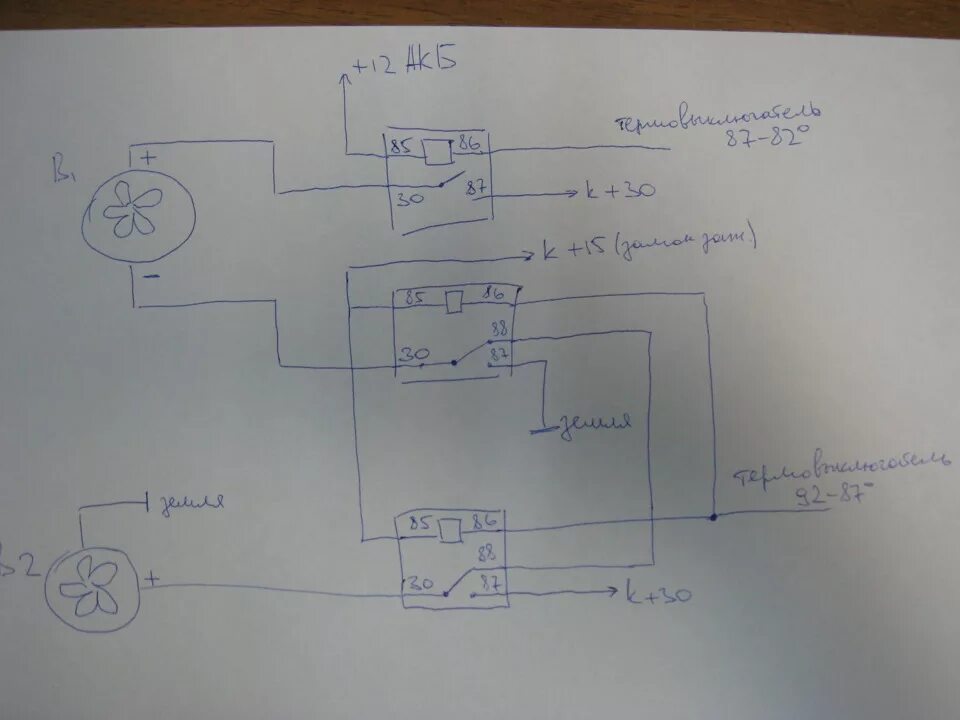 +12 АКБ
термовыключатель
87-82°
85 86
В1
+
30 87
k +30
−
k +15 (замок заж.)
85 86
88
30 87
земля
термовыключатель
92-87°
земля
85 86
88
В2
+
30 87
k +30